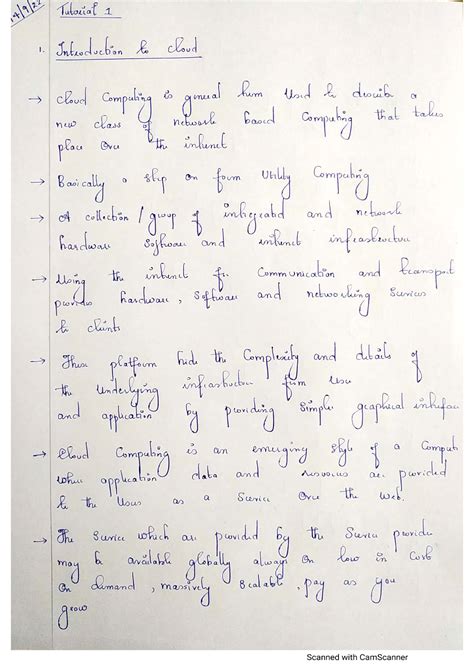 14/9/22
Tutorial 1
1. Introduction to cloud
→ Cloud Computing is general term used to describe a
new class of network based Computing that takes
place over the internet
→ Basically a step on from Utility Computing
→ A collection / group of integrated and network
hardware Software and internet infrastructure
→ Using the internet for Communication and transport
provides hardware, Software and networking Services
to clients
→ These platform hide the Complexity and details of
the underlying infrastructure from User
and application by providing Simple graphical interface
→ Cloud Computing is an emerging style of a Computi
where application data and resources are provided
to the Users as a Service Over the Web.
→ The Service which are provided by the Service provider
may be available globally always on low in Cost
On demand, massively Scalable, pay as you
grow
Scanned with CamScanner